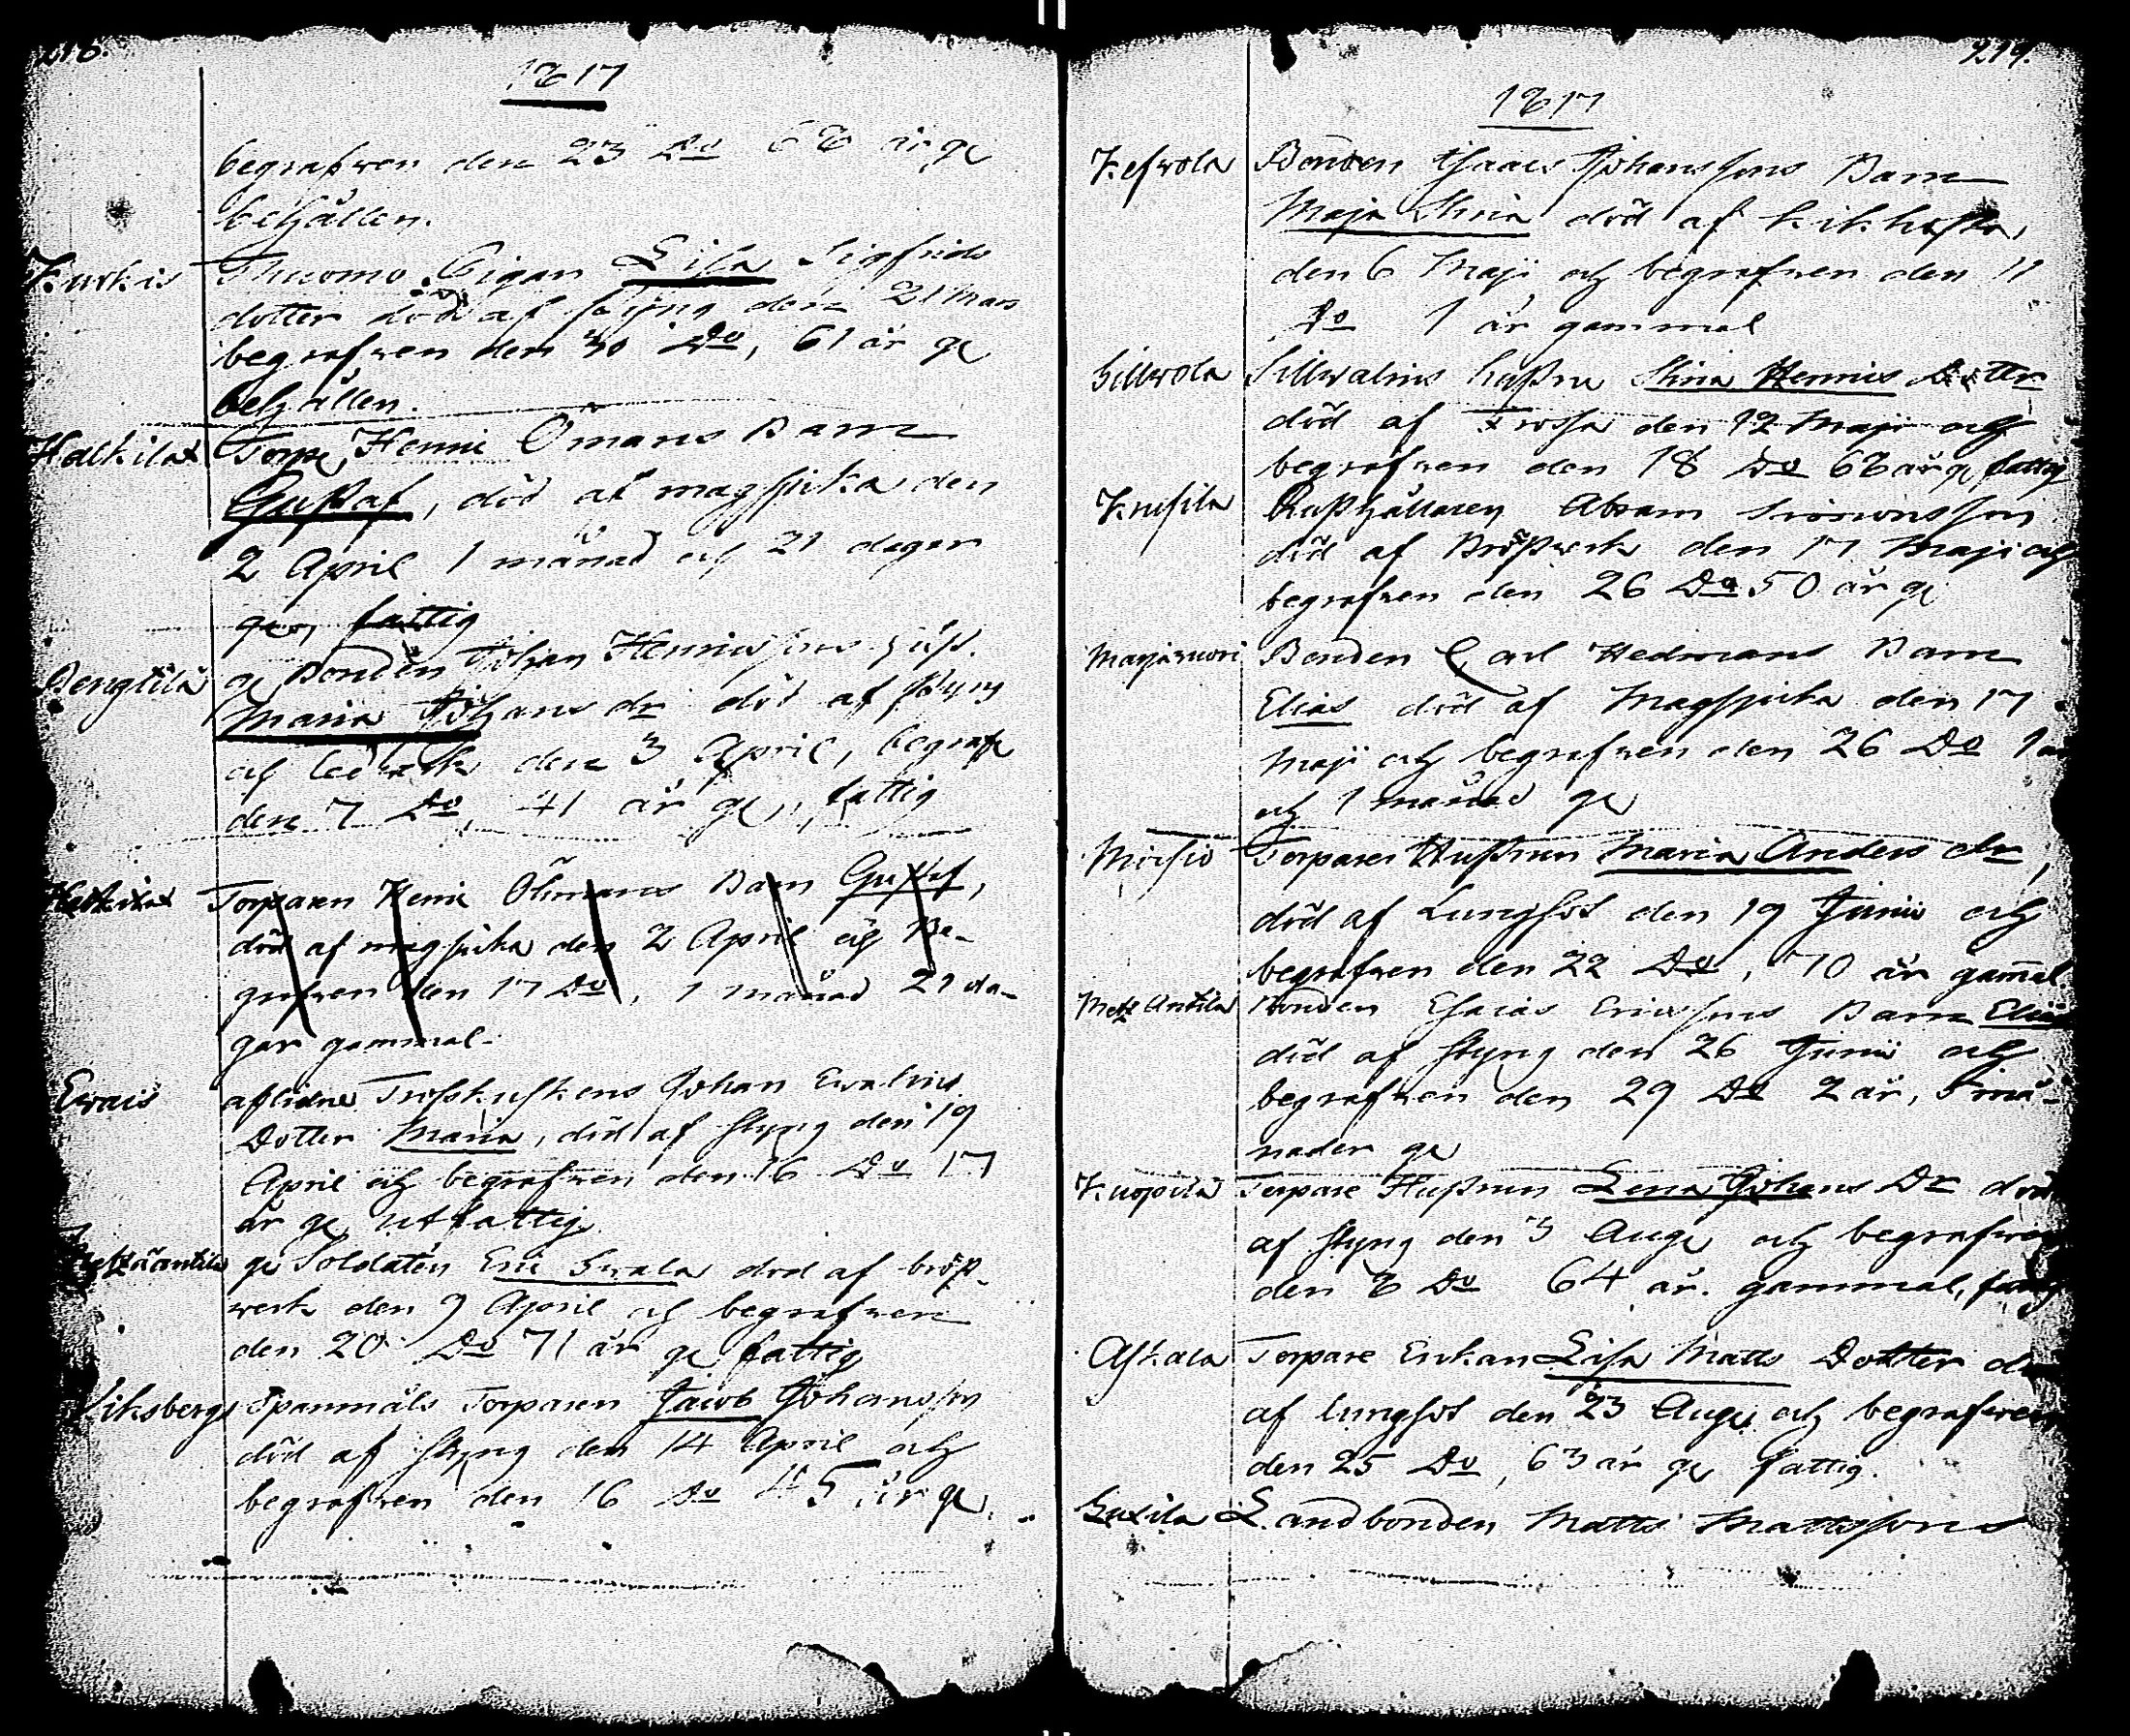 218.
1817
begrafwen den 23 Do 68 år ge
behållen.
Kurkis Thuomo Pigan Lisa Sigfrids
dotter död af styng den 21 Mars
begrafwen den 30 Do, 61 år ge
behållen.
Halkilax Torpe Henric Ömans Barn
Gustaf, död af magsjuka den
2 April 1 månad och 21 dagar
ge, fattig
Bengtilä ge Bonden Johan Henricssons hust.
Maria Johans dr död af styng
af den 3 April, begrafn
den 7 Do, 41 år ge, fattig
Halkilax Torparen Henric Öhmans Barn Gustaf,
död af magsjuka den 2 April och Be-
grafwen den 17 Do, 1 månad 21 da-
gar gammal.
Ewais aflidne Trosskuskens Johan Ewalins
Dotter Maria, död af styng den 19
April och begrafwen den 16 Do 17
år ge utfattig
Metzäantila ge Soldaten Eric Swala död af bröst-
werk den 9 April och begrafwen
den 20 Do 71 år ge fattig
Wiksberg Spanmåls Torparen Jacob Johansson
död af styng den 14 April och
begrafwen den 16 Do 45 år ge.
219.
1817
Kefwola Bonden Isaacs Johanssons Barn
Maja Stina död af kikhosta
den 6 Maji och begrafwen den 11
Do 1 år gammal
Sillwola Sillwalins hustru Stina Henrics Dotter
död af Frossa den 12 Maji och
begrafwen den 18 Do 68 år ge fattig
Krusila Rusthållaren Abram Simonsson
död af Bröstwerk den 17 Maji och
begrafwen den 26 Do 50 år ge
Marjavuori Bonden Carl Hedmans Barn
Elias död af Magsjuka den 17
Maji och begrafwen den 26 Do 1 år
och 1 månad ge
Moisio Torpare Hustrun Maria Anders dr,
död af Lungsot den 19 Junii och
begrafwen den 22 Do, 70 år gamal
Metz Antila Bonden Esaias Ericssons Barn Elias
död af styng den 26 Junii och
begrafwen den 29 Do 2 år, 5 må-
nader ge
Kuopila Torpare Hustrun Lena Johans Dr död
af styng den 3 Aug och begrafwen
den 8 Do 64 år gammal, fattig
Askala Torpare Enkan Lisa Matts Dotter död
af lungsot den 23 Aug och begrafwen
den 25 Do, 63 år ge fattig.
Suxila Landbonden Matts Mattssons